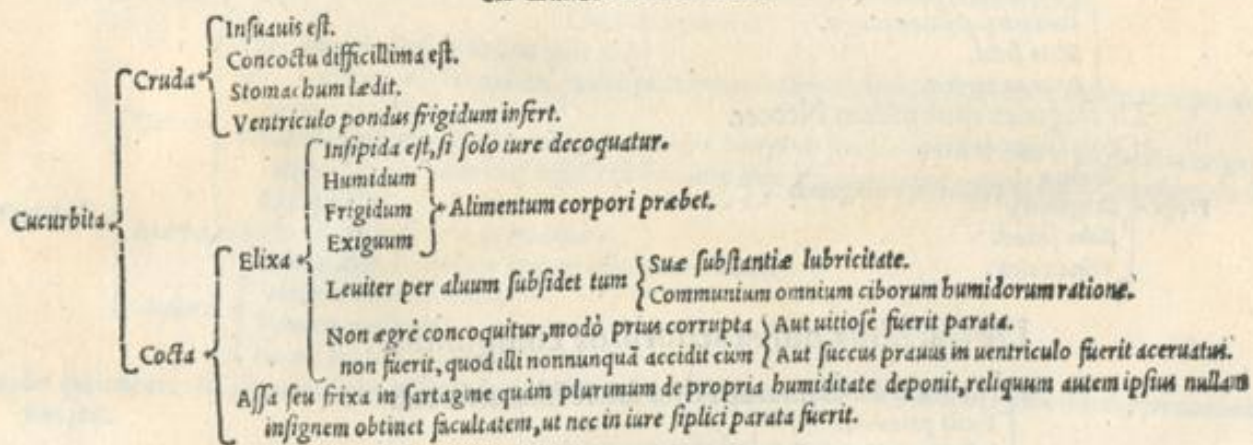 Insuauis est.
Concoctu difficillima est.
Cruda
Stomachum lædit.
Ventriculo pondus frigidum infert.
Insipida est, si solo iure decoquatur.
Humidum
Frigidum
Alimentum corpori præbet.
Exiguum
Cucurbita.
Elixa
Leuiter per aluum subsidet tum
Suæ substantiæ lubricitate.
Communium omnium ciborum humidorum ratione.
Non ægrè concoquitur, modò prius corrupta
Aut uitiosè fuerit parata.
non fuerit, quod illi nonnunquã accidit cùm
Aut succus prauus in uentriculo fuerit aceruatus.
Cocta
Assa seu frixa in sartagine quàm plurimum de propria humiditate deponit, reliquum autem ipsius nullam
insignem obtinet facultatem, ut nec in iure siplici parata fuerit.